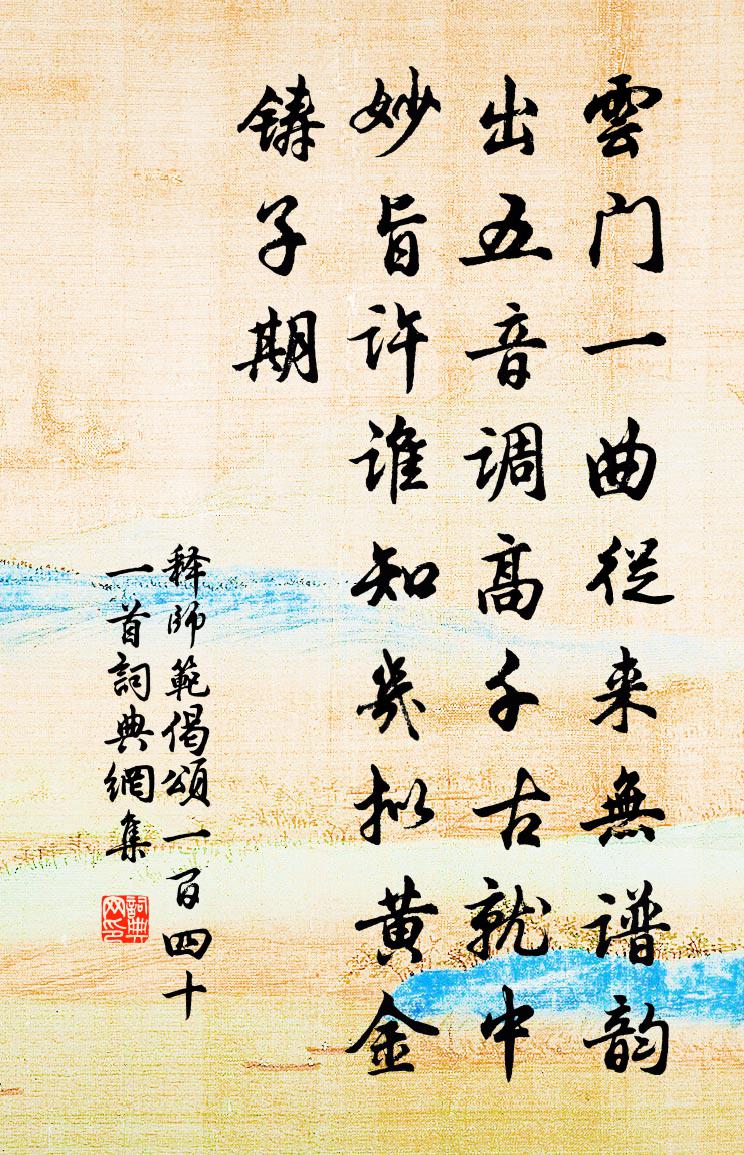 雲门一曲従来無谱韵
出五音调高千古就中
妙旨许谁知幾拟黄金
铸子期
释師範偈頌一百四十
一首詞典網集
詞典
网印